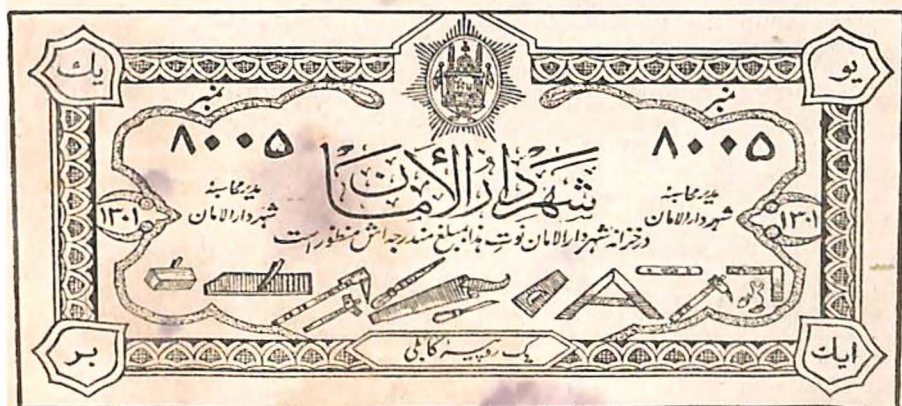 یو
یك
نمبر
نمبر
۸۰۰۵
۸۰۰۵
شهر دارالأمان
مدیر محاسبه
شهر دارالامان
مدیر محاسبه
شهر دارالامان
۱۳۰۱
۱۳۰۱
در خزانهٔ شهر دارالامان نوت هذا بمبلغ مندرجه اش منظور است
ایك
یک روپیهٔ کابلی
بر